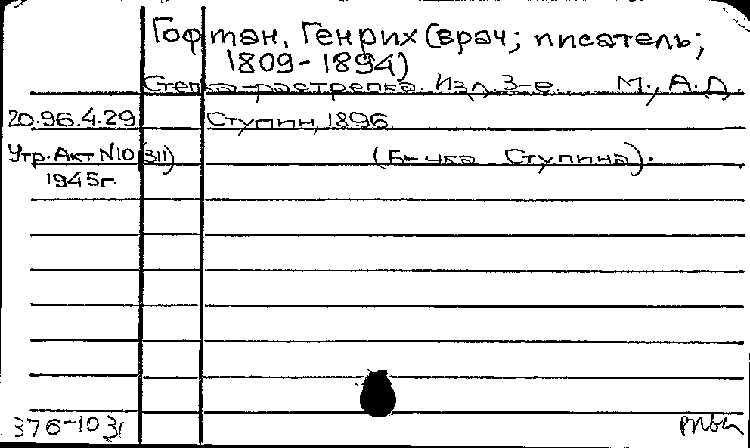 Гофман, Генрих (врач; писатель;
1809-1894)
Степка-растрепка. Изд. 3-е. М., А.Д.
20.96.4.29 Ступин, 1896.
Утр. Акт N10 (311) (Б-чка Ступина).
1945г.
376-103